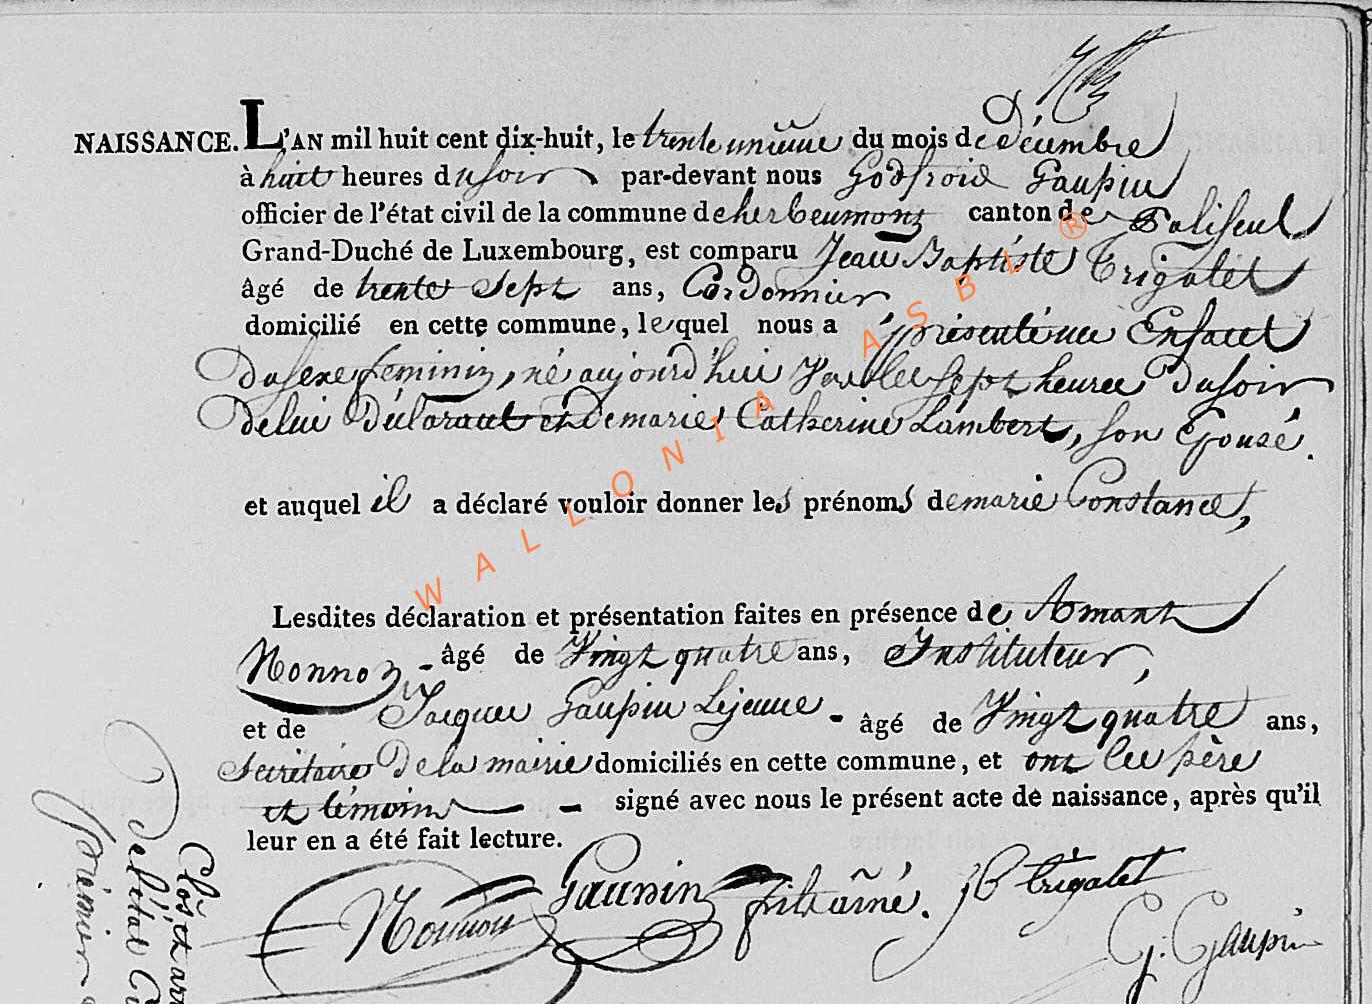 NAISSANCE. L'AN mil huit cent dix-huit, le trente unième du mois de décembre
à huit heures du soir par-devant nous Godfroid Gaupin
officier de l'état civil de la commune de herbeumont canton de Paliseul
Grand-Duché de Luxembourg, est comparu Jean Baptiste Trigalet
âgé de trente Sept ans, Cordonnier
domicilié en cette commune, lequel nous a présenté une Enfant
Du sexe feminin, né aujourd'hui vers les sept heures Du soir
De lui Déclarant et De marie Catherine Lambert, son Epouse.
et auquel il a déclaré vouloir donner les prénoms de marie Constance,
Lesdites déclaration et présentation faites en présence de Amant
Nonnon - âgé de Vingt quatre ans, Instituteur,
et de Jacques Gaupin Lejeune - âgé de Vingt quatre ans,
Secrétaire De la mairie domiciliés en cette commune, et ont les père
et témoins signé avec nous le présent acte de naissance, après qu'il
leur en a été fait lecture.
Nonnon Gaupin fils aîné. JB trigalet
G. Gaupin
Clos, et arr
De l'état Ci
premier
WALLONIA ASBL ®